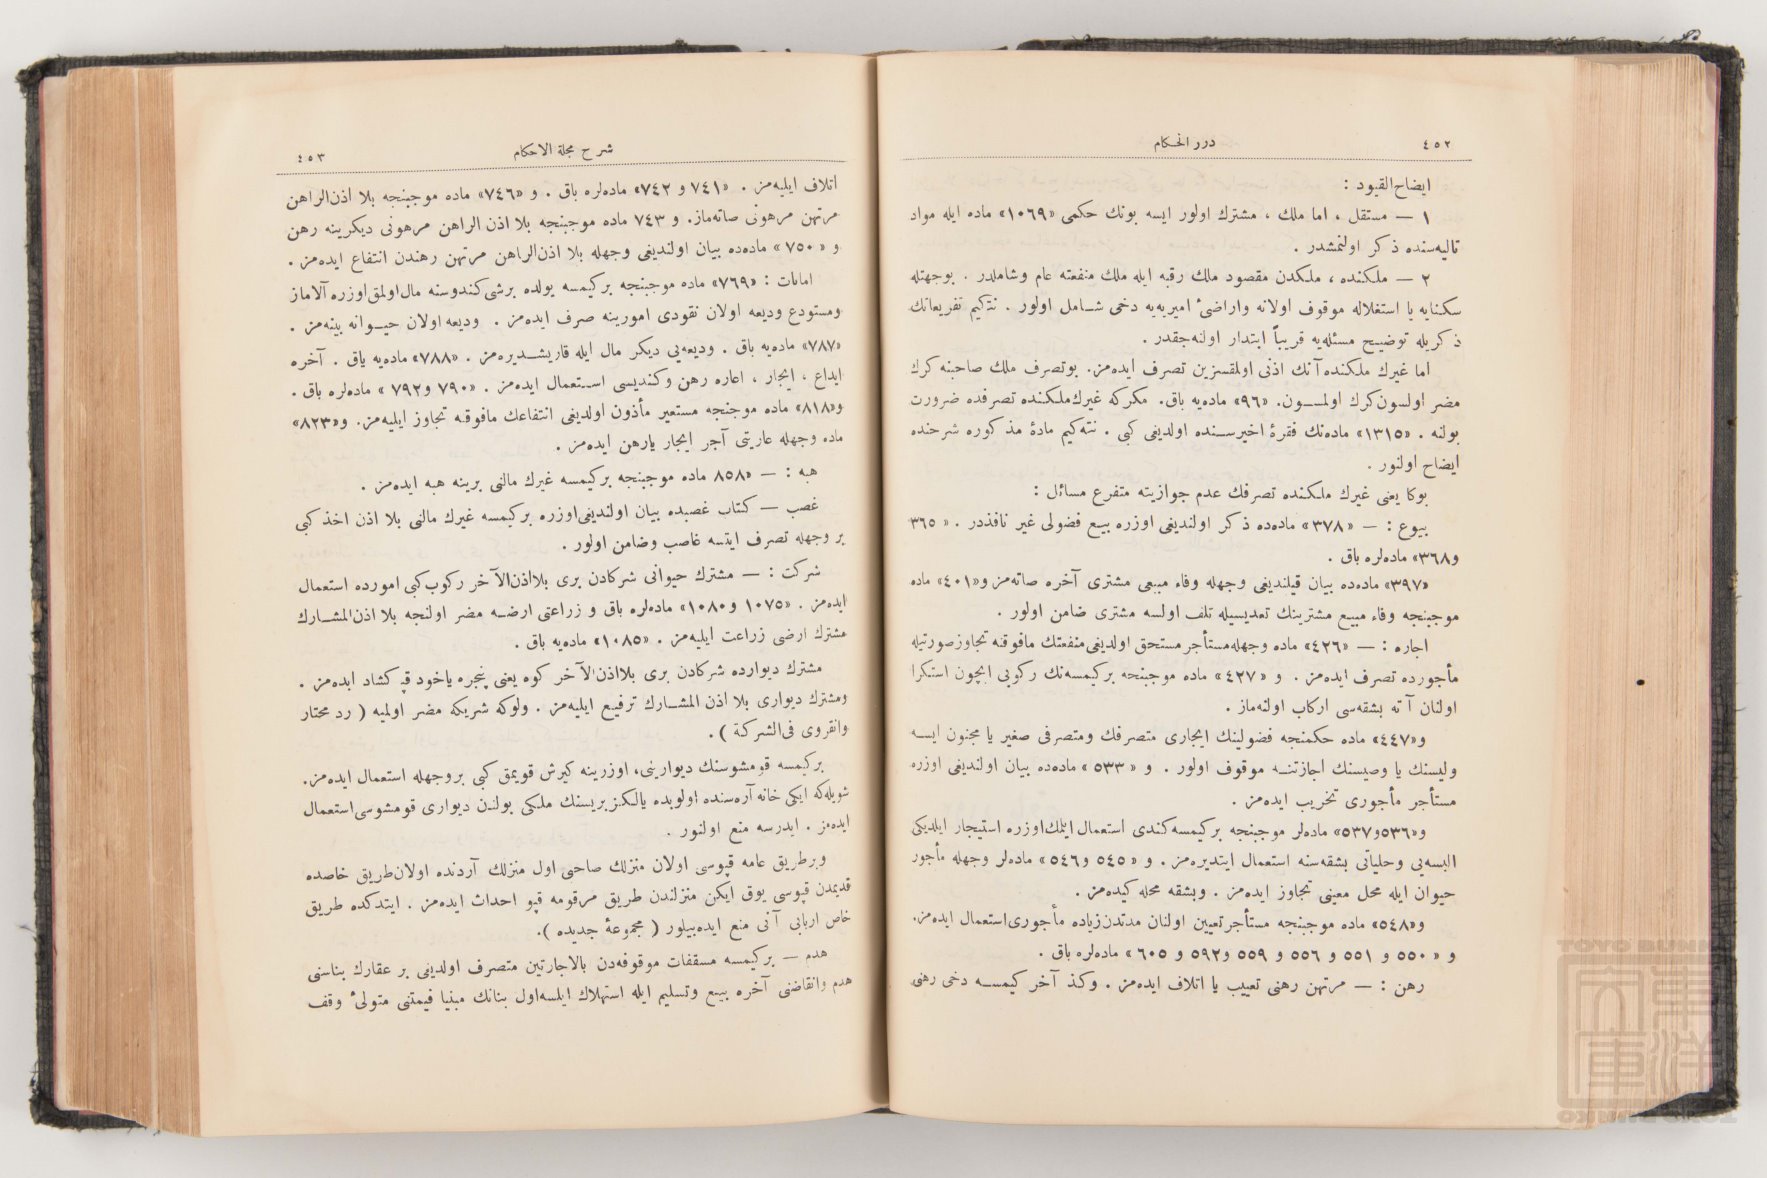 ٤٥٢
درر الحكام
ايضاح القيود :
١ — مستقل ، اما ملك ، مشترك اولور ايسه بونك حكمى «١٠٦٩» ماده ايله مواد
تاليه‌سنده ذكر اولنمشدر .
٢ — ملكنده ، ملكدن مقصود ملك رقبه ايله ملك منفعته عام وشاملدر . بوجهتله
سكنايه يا استغلاله موقوف اولانه واراضئ اميريه‌يه دخى شـامل اولور . نته‌كيم تفريعاتك
ذكريله توضيح مسئله‌يه قريباً ابتدار اولنه‌جقدر .
اما غيرك ملكنده آنك اذنى اولمقسزين تصرف ايده‌مز. بوتصرف ملك صاحبنه كرك
مضر اولسون كرك اولمسـون. «٩٦» ماده‌يه باق. مكركه غيرك ملكنده تصرفده ضرورت
بولنه . «١٣١٥» ماده‌نك فقرۀ اخيرسـنده اولديغى كبى . نته‌كيم مادۀ مذكوره شرحنده
ايضاح اولنور .
بوكا يعنى غيرك ملكنده تصرفك عدم جوازينه متفرع مسائل :
بيوع : — «٣٧٨» ماده‌ده ذكر اولنديغى اوزره بيع فضولى غير نافذدر . «٣٦٥
و٣٦٨» ماده‌لره باق .
«٣٩٧» ماده‌ده بيان قيلنديغى وجهله وفاء مبيعى مشترى آخره صاته‌مز و«٤٠١» ماده
موجبنجه وفاء مبيع مشترينك تعديسيله تلف اولسه مشترى ضامن اولور .
اجاره : — «٤٢٦» ماده وجهله مستأجر مستحق اولديغى منفعتك مافوقنه تجاوز صورتيله
مأجورده تصرف ايده‌مز . و «٤٢٧» ماده موجبنجه بركيمسه‌نك ركوبى ايچون استكرا
اولنان آته بشقه‌سى اركاب اولنه‌ماز .
و«٤٤٧» ماده حكمنجه فضولينك ايجارى متصرفك ومتصرفى صغير يا مجنون ايسـه
وليسنك يا وصيسنك اجازتنـه موقوف اولور . و «٥٣٣» ماده‌ده بيان اولنديغى اوزره
مستأجر مأجورى تخريب ايده‌مز .
و«٥٣٦و٥٣٧» ماده‌لر موجبنجه بركيمسه كندى استعمال ايتمك اوزره استيجار ايلديكى
البسه‌يى وحلياتى بشقه‌سنه استعمال ايتديره‌مز . و «٥٤٥ و٥٤٦» ماده‌لر وجهله مأجور
حيوان ايله محل معينى تجاوز ايده‌مز . وبشقه محله كيده‌مز .
و«٥٤٨» ماده موجبنجه مستأجر تعيين اولنان مدتدن زياده مأجورى استعمال ايده‌مز.
و «٥٥٠ و ٥٥١ و ٥٥٦ و ٥٥٩ و٥٩٢ و ٦٠٥» ماده‌لره باق .
رهن : — مرتهن رهنى تعييب يا اتلاف ايده‌مز . وكذ آخر كيمسـه دخى رهنى
شرح مجلة الاحكام
٤٥٣
اتلاف ايليه‌مز . «٧٤١ و ٧٤٢» ماده‌لره باق . و «٧٤٦» ماده موجبنجه بلا اذن الراهن
مرتهن مرهونى صاته‌ماز. و ٧٤٣ ماده موجبنجه بلا اذن الراهن مرهونى ديكرينه رهن
و «٧٥٠» ماده‌ده بيان اولنديغى وجهله بلا اذن الراهن مرتهن رهندن انتفاع ايده‌مز .
امانات : «٧٦٩» ماده موجبنجه بركيمسه يولده برشى كندوسنه مال اولمق اوزره آلاماز
ومستودع وديعه اولان نقودى امورينه صرف ايده‌مز . وديعه اولان حيـوانه بينه‌مز .
«٧٨٧» ماده‌يه باق . وديعه‌يى ديكر مال ايله قاريشـديره‌مز . «٧٨٨» ماده‌يه باق . آخره
ايداع ، ايجار ، اعاره رهن وكنديسى اسـتعمال ايده‌مز . «٧٩٠ و٧٩٢» ماده‌لره باق .
و«٨١٨» ماده موجبنجه مستعير مأذون اولديغى انتفاعك مافوقنه تجاوز ايليه‌مز. و«٨٢٣»
ماده وجهله عاريتى آجر ايجار يارهن ايده‌مز .
هبه : — «٨٥٨ ماده موجبنجه بركيمسه غيرك مالنى برينه هبه ايده‌مز .
غصب — كتاب غصبده بيان اولنديغى اوزره بركيمسه غيرك مالنى بلا اذن اخذ كبى
بر وجهله تصرف ايتسه غاصب وضامن اولور .
شركت : — مشترك حيوانى شركادن برى بلااذن الآخر ركوب كبى امورده استعمال
ايده‌مز . «١٠٧٥ و١٠٨٠» ماده‌لره باق و زراعتى ارضـه مضر اولنجه بلا اذن المشـارك
مشترك ارضى زراعت ايليه‌مز . «١٠٨٥» ماده‌يه باق .
مشترك ديوارده شركادن برى بلااذن الآخر كوه يعنى پنجره ياخود قپو كشاد ايده‌مز .
ومشترك ديوارى بلا اذن المشـارك ترفيع ايليه‌مز . ولوكه شريكه مضر اولميه ( رد محتار
وانقروى فى الشركة ) .
بركيمسه قومشوسنك ديوارينى، اوزرينه كيرش قويمق كبى بروجهله استعمال ايده‌مز.
شويله‌كه ايكى خانه آره‌سنده اولوبده يالكز بريسنك ملكى بولنن ديوارى قومشوسى استعمال
ايده‌مز . ايدرسه منع اولنور .
وبرطريق عامه قپوسى اولان منزلك صاحبى اول منزلك آردنده اولان طريق خاصده
قديمدن قپوسى يوق ايكن منزلندن طريق مرقومه قپو احداث ايده‌مز . ايتدكده طريق
خاص اربابى آنى منع ايده‌بيلور ( مجموعۀ جديده ).
هدم — بركيمسه مسقفات موقوفه‌دن بالاجارتين متصرف اولديغى بر عقارك بناسنى
هدم وانقاضنى آخره بيع وتسليم ايله استهلاك ايلسه اول بنانك مبنيا قيمتنى متولئ وقف
TOYO BUNKO